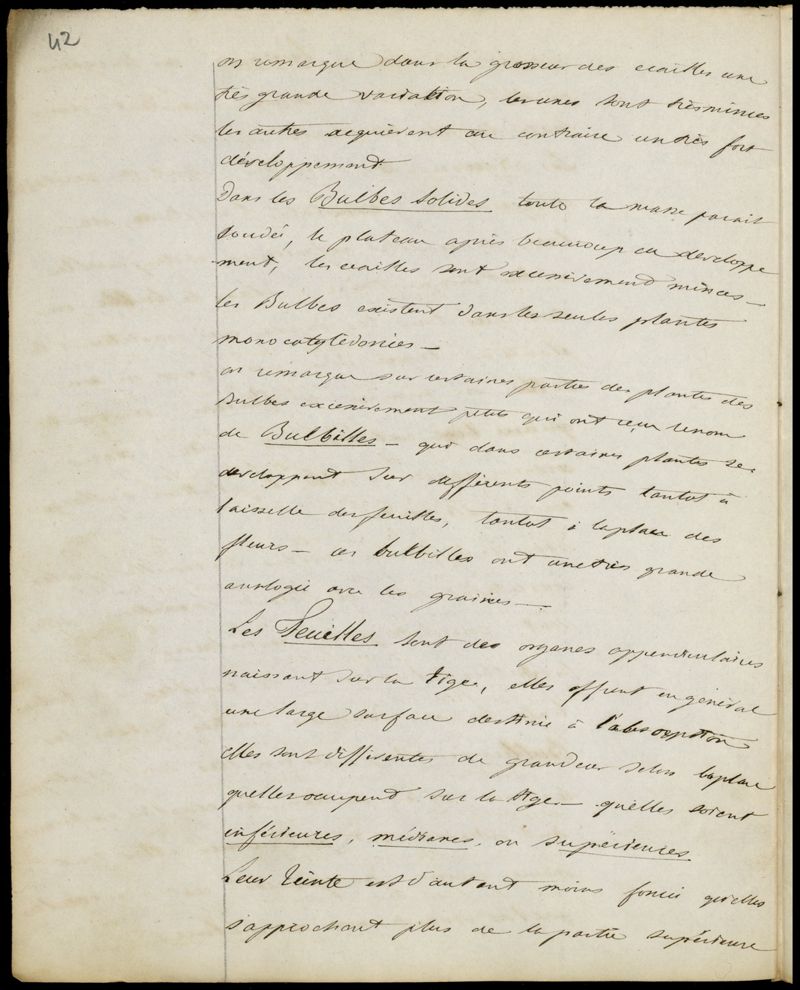 42
on remarque dans la grosseur des ecailles une
très grande variation, les unes sont très minces
les autres acquièrent au contraire un très fort
développement
Dans les Bulbes Solides toute la masse parait
soudée, le plateau après beaucoup de developpe
ment, les ecailles sont excessivement minces –
les Bulbes existent dans les seules plantes
monocotyledonées –
on remarque sur certaines parties des plantes des
Bulbes excessivement petits qui ont reçu le nom
de Bulbilles – qui dans certaines plantes se
developpent sur différents points tantot à
l'aisselle des feuilles, tantot à la place des
fleurs – ces bulbilles ont une très grande
analogie avec les graines –
Les Feuilles sont des organes appendiculaires
naissant sur la tige, elles offrent en général
une large surface destinée à l'absorption
elles sont différentes de grandeur selon la place
qu'elles occupent sur la tige – qu'elles soient
inférieures, médianes, ou supérieures
Leur teinte est d'autant moins foncée qu'elles
s'approchent plus de la partie supérieure